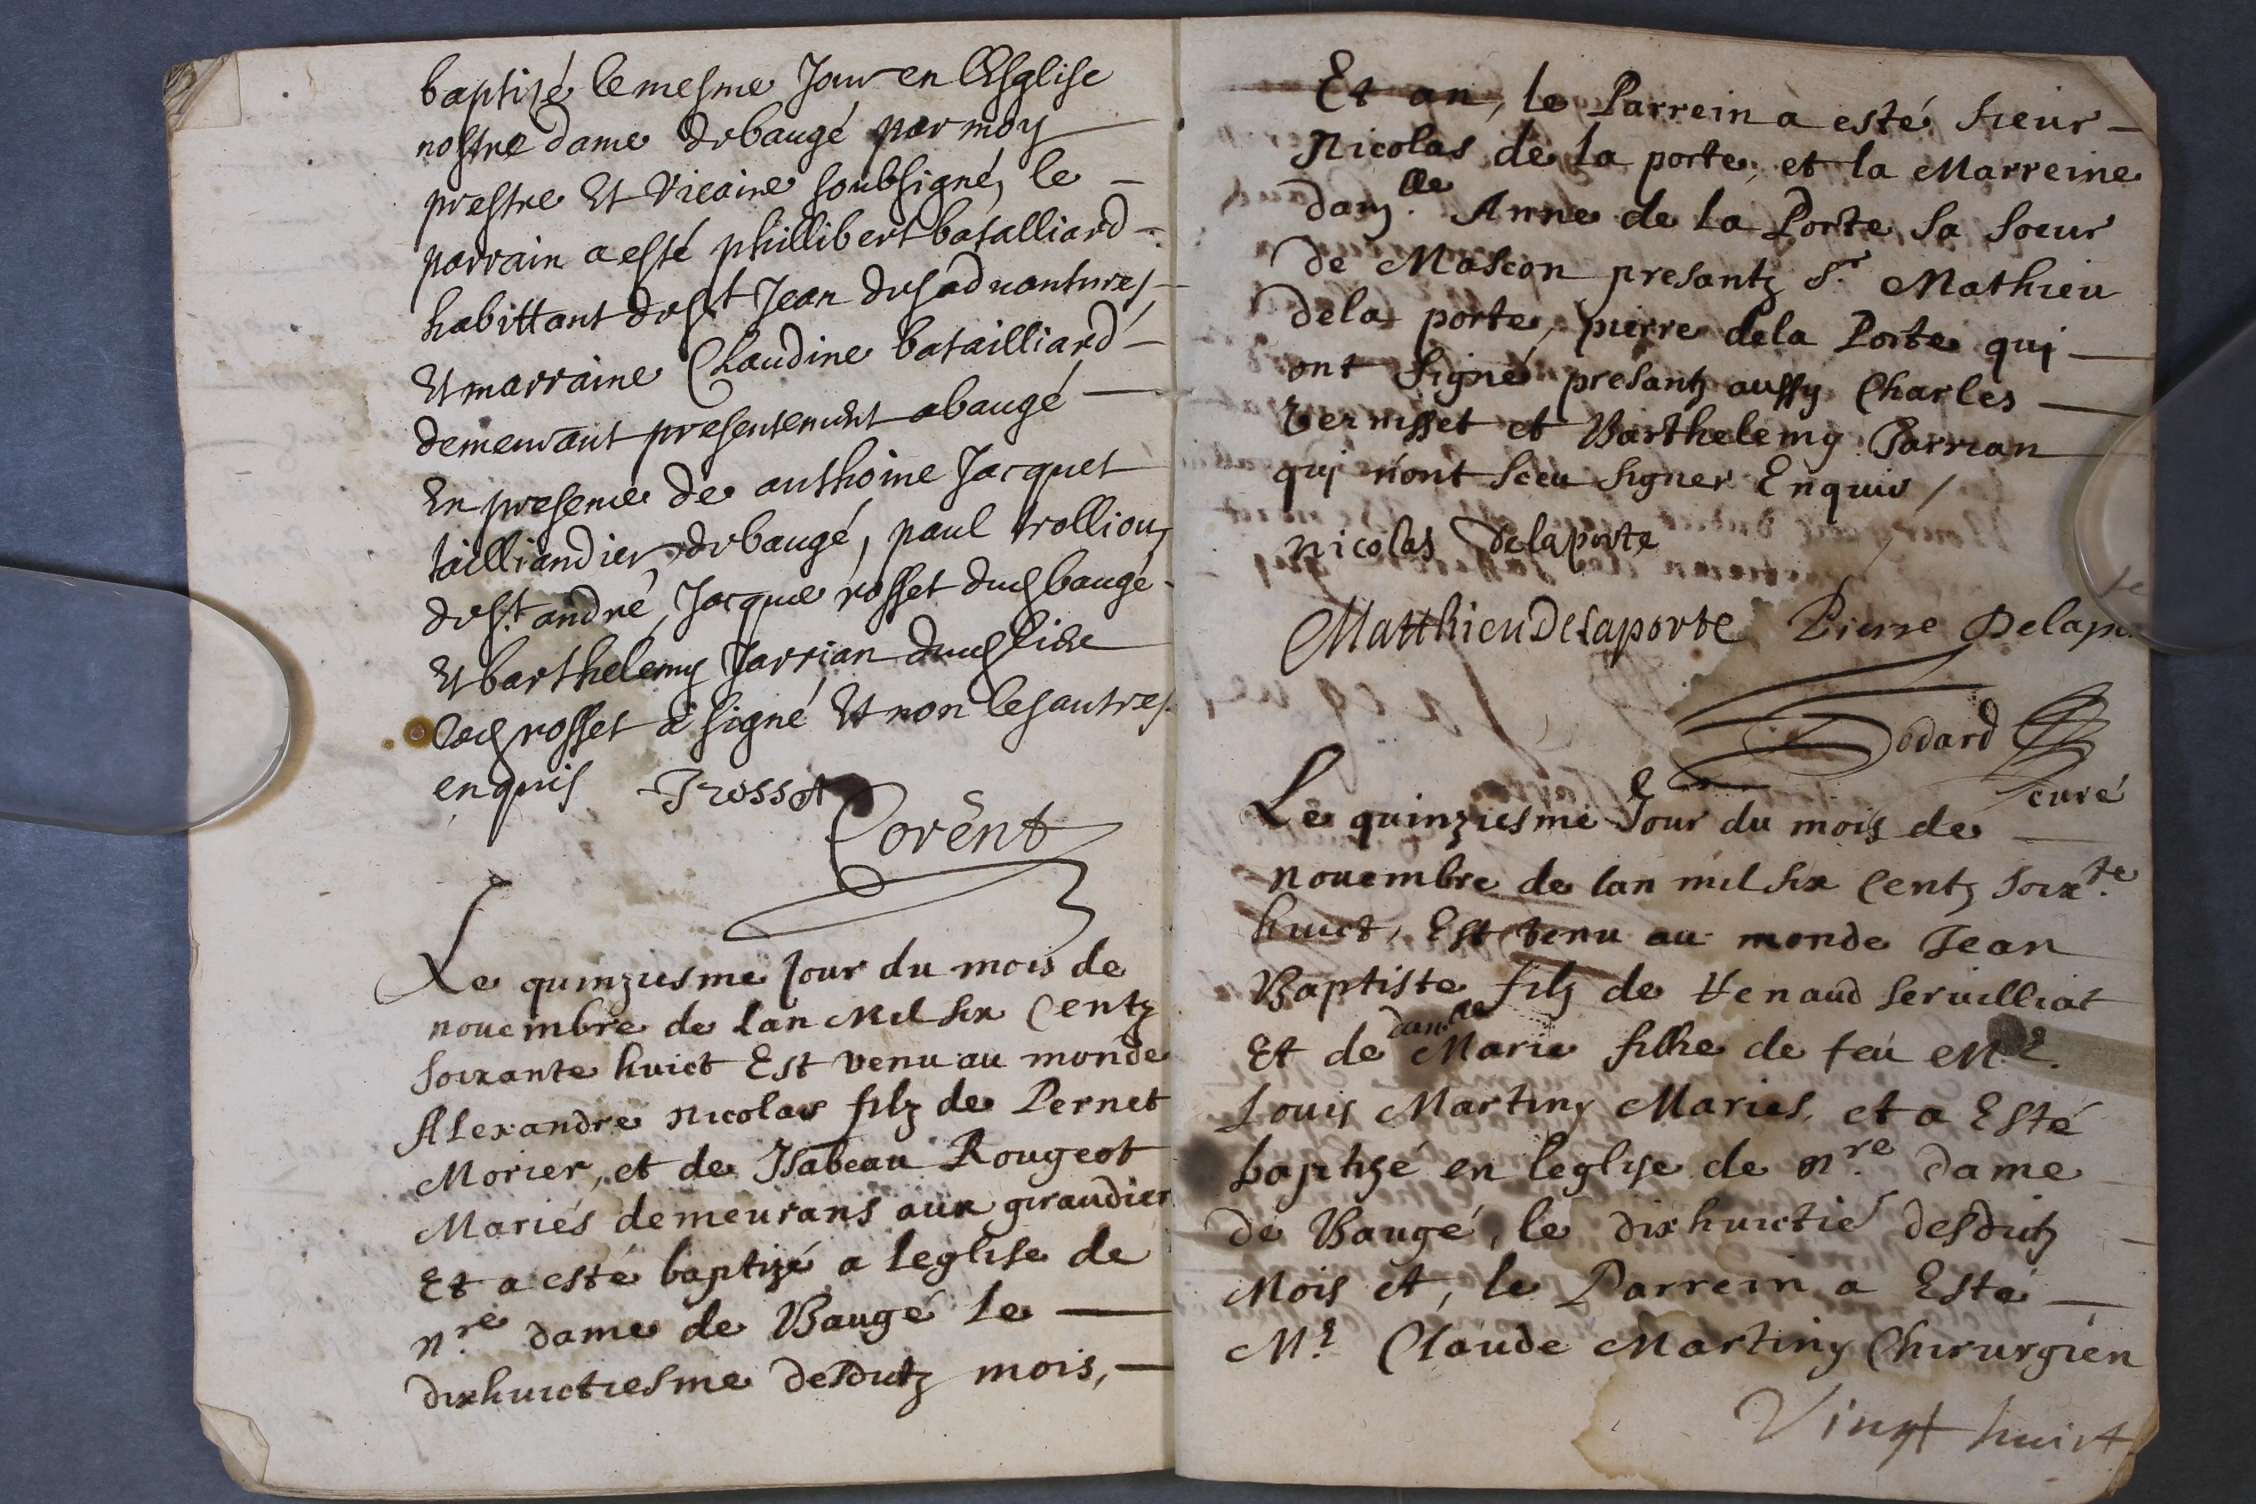 baptizé le mesme Jour en lEsglise
nostre dame de baugé par moy
prestre Et Vicaire soubsigné, le
parrain a esté phillibert batalliard
habittant de st Jean des aduantures
Et marraine Claudine batailliard
demeurant presentement a baugé
En presence de anthoine Jacquet
tailliandier de baugé, paul trolliou
de st. andré, Jacque rosset dud baugé
Et barthelemy Jarrian dud lieu
led rosset a signé Et non les autres
enquis Jrosset
Corent
Le quinziesme Jour du mois de
nouembre de lan Mil six Centz
soixante huict Est venu au monde
Alexandre nicolas filz de Pernet
Morier, et de Jsabeau Rougeot
Mariés demeurans aux giraudier
Et a esté baptizé a leglise de
nre. dame de Baugé le
dixhuictiesme desditz mois,
Et an, le Parrein a esté sieur
Nicolas de la porte, et la Marreine
dam.lle Anne de la Porte sa soeur
de Mascon presantz Sr. Mathieu
dela porte, pierre dela Porte qui
ont signé presantz aussy Charles
Vernisset et Barthelemy Jarrian
qui nont sceu signer Enquis /
nicolas Delaporte
Matthieu Delaporte Pierre Delapo
Dodard
curé
Le quinziesme Jour du mois de
nouembre de lan mil six Centz soixte.
huict, Est venu au monde Jean
Baptiste filz de Renaud Seruilliat
Et de damlle Marie fillie de feu Mr.
Louis Martiny Mariés, et a Esté
baptizé en leglise de nre. dame
de Baugé, le dixhuictie desditz
Mois et, le Parrein a Esté
Mr. Claude Martiny Chirurgien
Vingt huict